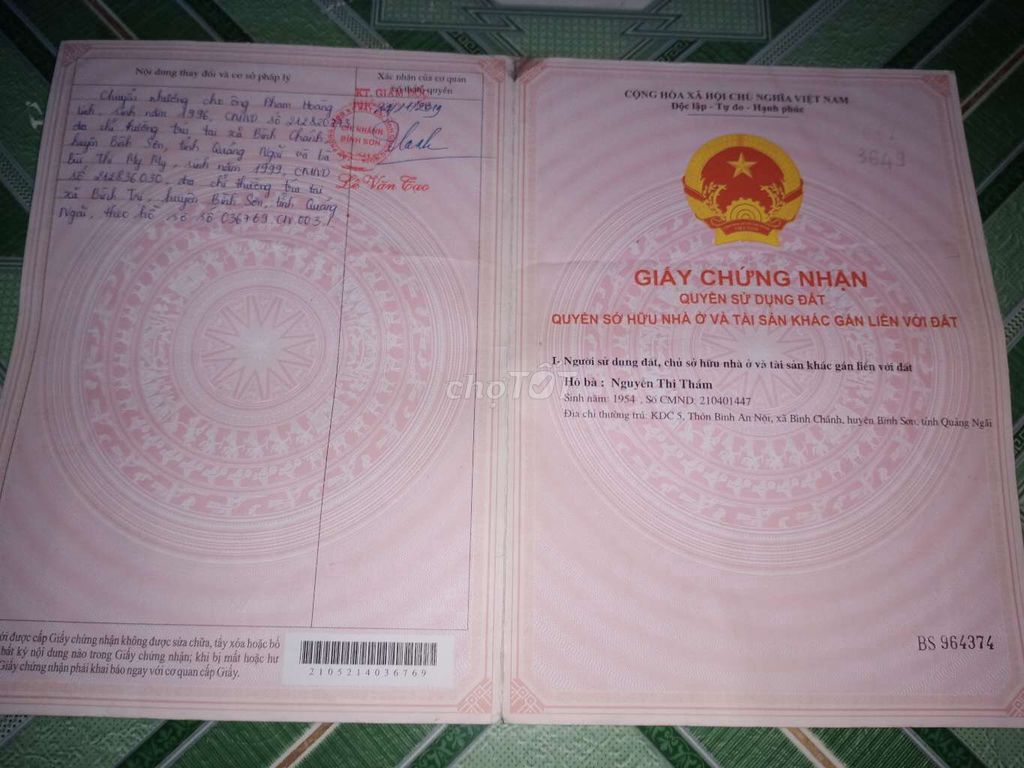 Nội dung thay đổi và cơ sở pháp lý
Xác nhận của cơ quan
có thẩm quyền
Chuyển nhượng cho ông Phạm Hoàng
Linh, sinh năm 1996, CMND số 212820793
địa chỉ thường trú tại xã Bình Chánh,
huyện Bình Sơn, tỉnh Quảng Ngãi và bà
Bùi Thị My My, sinh năm 1999, CMND
số 212836030, địa chỉ thường trú tại
xã Bình Trị, huyện Bình Sơn, tỉnh Quảng
Ngãi, theo hồ sơ số 036769.CN.003./
KT. GIÁM ĐỐC
CHI NHÁNH
BÌNH SƠN
Lê Văn Tạo
ời được cấp Giấy chứng nhận không được sửa chữa, tẩy xóa hoặc bổ
bất kỳ nội dung nào trong Giấy chứng nhận; khi bị mất hoặc hư
Giấy chứng nhận phải khai báo ngay với cơ quan cấp Giấy.
2105214036769
CỘNG HÒA XÃ HỘI CHỦ NGHĨA VIỆT NAM
Độc lập - Tự do - Hạnh phúc
3649
GIẤY CHỨNG NHẬN
QUYỀN SỬ DỤNG ĐẤT
QUYỀN SỞ HỮU NHÀ Ở VÀ TÀI SẢN KHÁC GẮN LIỀN VỚI ĐẤT
I- Người sử dụng đất, chủ sở hữu nhà ở và tài sản khác gắn liền với đất
Hộ bà : Nguyễn Thị Thắm
Sinh năm: 1954 , Số CMND: 210401447
Địa chỉ thường trú: KDC 5, Thôn Bình An Nội, xã Bình Chánh, huyện Bình Sơn, tỉnh Quảng Ngãi
BS 964374
chợTỐT